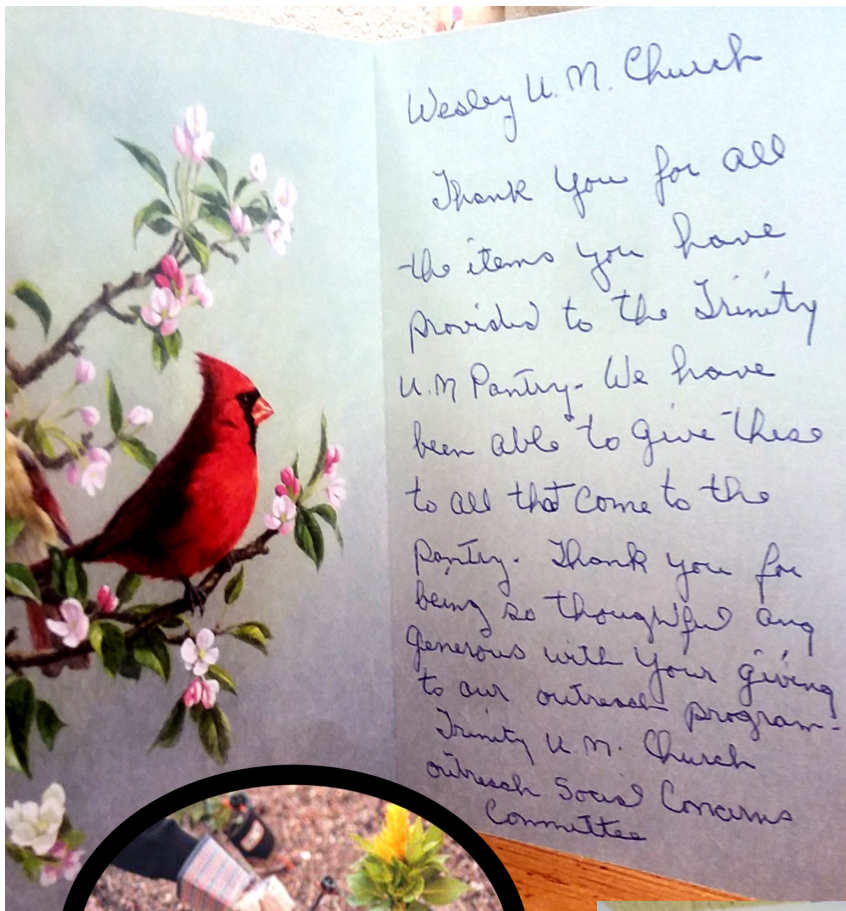 Wesley U. M. Church
Thank you for all
the items you have
provided to the Trinity
U.M Pantry. We have
been able to give these
to all that come to the
pantry. Thank you for
being so thoughtful and
generous with your giving
to our outreach program.
Trinity U. M. Church
outreach Social Concerns
Committee